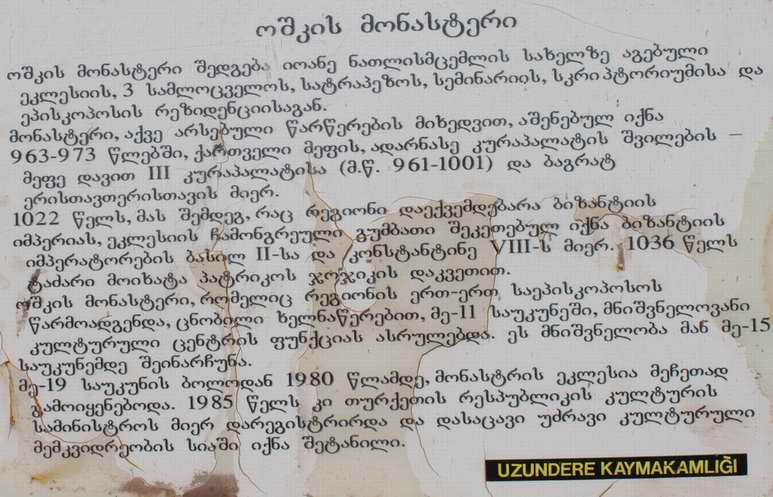 ოშკის მონასტერი
ოშკის მონასტერი შედგება იოანე ნათლისმცემლის სახელზე აგებული
ეკლესიის, 3 სამლოცველოს, სატრაპეზოს, სემინარიის, სკრიპტორიუმისა და
ეპისკოპოსის რეზიდენციისაგან.
მონასტერი, აქვე არსებული წარწერების მიხედვით, აშენებულ იქნა
963-973 წლებში, ქართველი მეფის, ადარნასე კურაპალატის შვილების –
მეფე დავით III კურაპალატისა (მ.წ. 961-1001) და ბაგრატ
ერისთავთერისთავის მიერ.
1022 წელს, მას შემდეგ, რაც რეგიონი დაექვემდებარა ბიზანტიის
იმპერიას, ეკლესიის ჩამონგრეული გუმბათი შეკეთებულ იქნა ბიზანტიის
იმპერატორების ბასილ II-სა და კონსტანტინე VIII-ს მიერ. 1036 წელს
ტაძარი მოიხატა პატრიკოს ჯოჯიკის დაკვეთით.
ოშკის მონასტერი, რომელიც რეგიონის ერთ-ერთ საეპისკოპოსოს
წარმოადგენდა, ცნობილი ხელნაწერებით, მე-11 საუკუნეში, მნიშვნელოვანი
კულტურული ცენტრის ფუნქციას ასრულებდა. ეს მნიშვნელობა მან მე-15
საუკუნემდე შეინარჩუნა.
მე-19 საუკუნის ბოლოდან 1980 წლამდე, მონასტრის ეკლესია მეჩეთად
გამოიყენებოდა. 1985 წელს კი თურქეთის რესპუბლიკის კულტურის
სამინისტროს მიერ დარეგისტრირდა და დასაცავი უძრავი კულტურული
მემკვიდრეობის სიაში იქნა შეტანილი.
UZUNDERE KAYMAKAMLIĞI